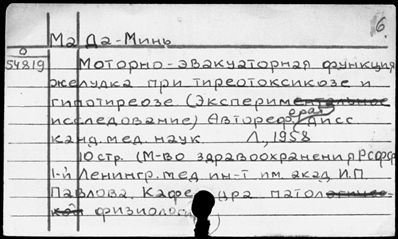 6
Ма Да-Минь
0
54819
Моторно-эвакуаторная функция
желудка при тиреотоксикозе и
гипотиреозе (Экспериментальное
исследование) Автореферат Дисс
канд. мед. наук Л, 1958
10 стр. (М-во здравоохранения РСФСР
1-й Ленингр. мед. ин-т им. акад. И.П.
Павлова. Кафедра патологичес-
кой физиологи